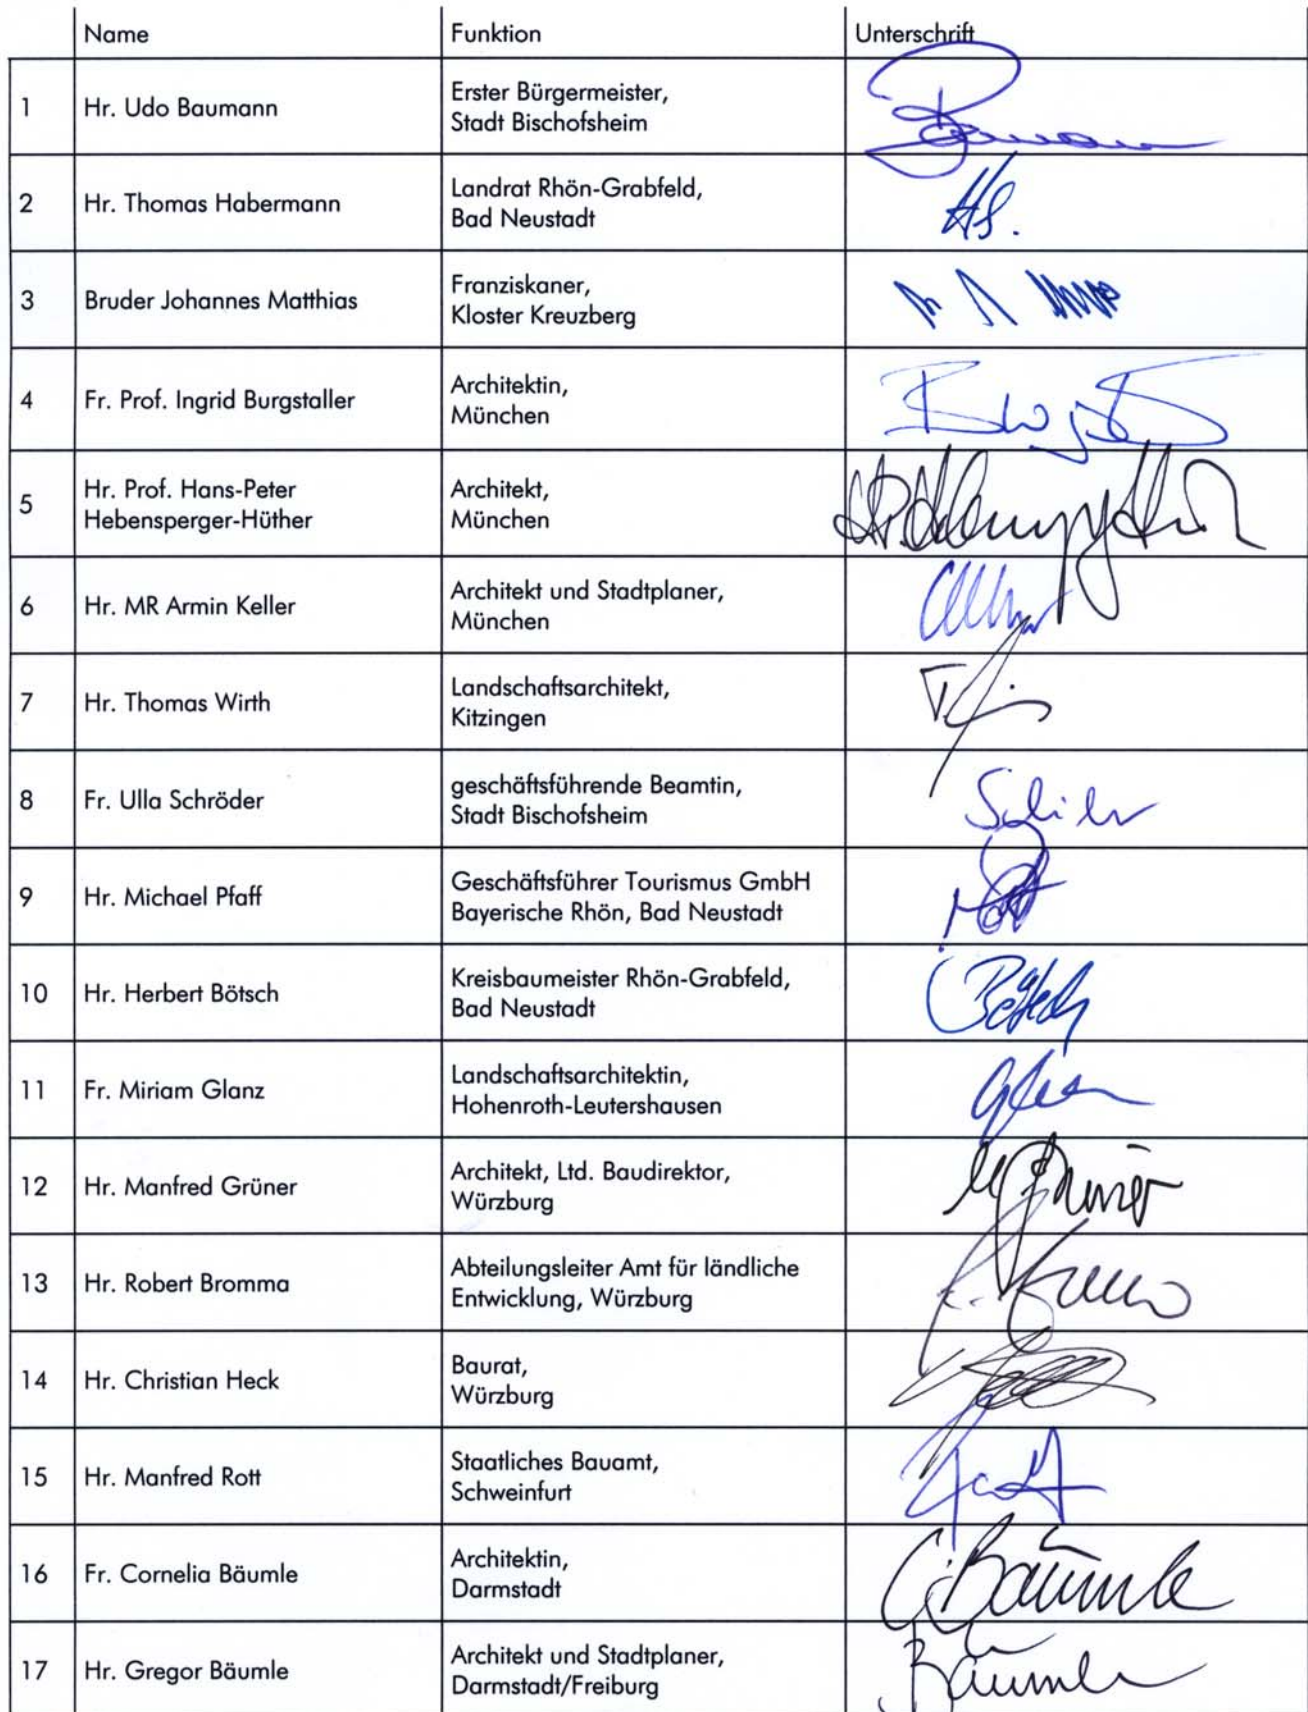 Name Funktion Unterschrift
1 Hr. Udo Baumann Erster Bürgermeister,
Stadt Bischofsheim
2 Hr. Thomas Habermann Landrat Rhön-Grabfeld,
Bad Neustadt
3 Bruder Johannes Matthias Franziskaner,
Kloster Kreuzberg
4 Fr. Prof. Ingrid Burgstaller Architektin,
München
5 Hr. Prof. Hans-Peter
Hebensperger-Hüther Architekt,
München
6 Hr. MR Armin Keller Architekt und Stadtplaner,
München
7 Hr. Thomas Wirth Landschaftsarchitekt,
Kitzingen
8 Fr. Ulla Schröder geschäftsführende Beamtin,
Stadt Bischofsheim
9 Hr. Michael Pfaff Geschäftsführer Tourismus GmbH
Bayerische Rhön, Bad Neustadt
10 Hr. Herbert Bötsch Kreisbaumeister Rhön-Grabfeld,
Bad Neustadt
Bötsch
11 Fr. Miriam Glanz Landschaftsarchitektin,
Hohenroth-Leutershausen
12 Hr. Manfred Grüner Architekt, Ltd. Baudirektor,
Würzburg
13 Hr. Robert Bromma Abteilungsleiter Amt für ländliche
Entwicklung, Würzburg
14 Hr. Christian Heck Baurat,
Würzburg
15 Hr. Manfred Rott Staatliches Bauamt,
Schweinfurt
16 Fr. Cornelia Bäumle Architektin,
Darmstadt
C. Bäumle
17 Hr. Gregor Bäumle Architekt und Stadtplaner,
Darmstadt/Freiburg
Bäumle